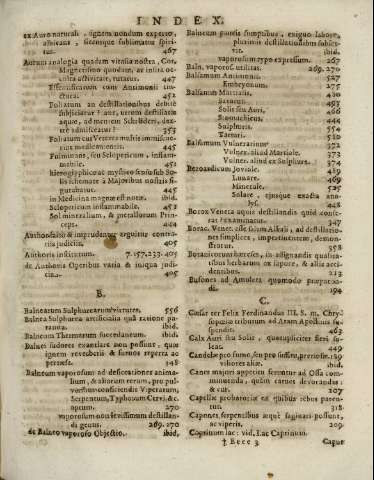 INDEX.
ex Auro naturali, signem nondum experto,
albicans, siccumque sublimatur spiri-
tus. 467
Aurum analogia quadam vitalia nostra, Cor,
Magnetismo quodam, ac insita oc-
culta activitate, tutatur. 447
Essentificatum cum Antimonii tin-
ctura. 452
Foliatum an destillationibus debitè
subjiciatur? ant, verum destillatum
aquæ, ad mentem Schröderi, ex-
trè admisceatur? 353
foliatum cur Veteres multis ammiscue-
rint medicamentis. 445
Fulminans, seu Sclopericum, inflam-
mabile. 451
hieroglyphicæ ac mystico sensu sub So-
lis schemate à Majoribus nostris fi-
guratur. 445
in Medicina magnæ est notæ. ibid.
Sclopericum inflammabile. 451
Sol mineralium, & metallorum Prin-
ceps. 444
Authorisatio & imprudenter arguitur contra-
ria judiciis. 405
Authoris institutum. 7.157.233.407
de Authoris Operibus varia & iniqua judi-
cia. 405
B.
Balnearum Sulphurearum virtutes. 556
Balnea Sulphurea artificialia quâ ratione pa-
randa. ibid.
Balneum Thermarum succedaneum. ibid.
Balnei sudores exantlare non possunt, quæ
ignem reverberii & furnos repetita ac
perensa. 178
Balneum vaporosum ad desiccationem anima-
lium, & aliorum rerum, pro pul-
veribus conficiendis Viperarum,
Serpentum, Typhorum Cervi, &c.
aptum. 270
vaporosum novissimum destillan-
di genus. 269. 270
de Balneo vaporoso Objectio. ibid.
Balneum puteis sumptibus, exiguo labore,
plurimis destillationibus subser-
vit. ibid.
vaporosum typo expressum. 267
Baln. vaporos. utilitas. 269. 270
Balsamum Antimonii. 527
Embryonum.
Balsamum Martialia. 420
Saturni. 493
Solis seu Auri. 466
Stomachicus. 444
Sulphuris. 554
Tartari. 510
Balsamus Vulnerarius 372
Vulner. aliud Martiale. 373
Vulner. aliud ex Sulphure. 374
Bezoardicum Joviale. 489
Lunare. 469
Minerale. 525
Solare, ejusque exacta ana-
lys. 448
Borax Veneta aquis destillandis quid confe-
rat? examinatur. 347
Borac. Venet. esse solum Alkali, ad destillatio-
nes simplices, impertinentem, demon-
stratur. 358
Botanicorum hæresis, in assignandis qualita-
tibus herbarum ex sapore, & aliis acci-
dentibus. 213
Bufones ad Amuleta quomodo præparan-
di. 194
C.
Cæsar ter Felix Ferdinandus III. S. m. Chry-
sopœiæ tributum ad Aram Apostoli su-
spendit. 463
Calx Auri seu Solis, quotupliciter fieri so-
leat. 449
Candelæ pro fumo, seu pro suffitu, pretiosæ. 189
vilioris aliæ. ibid.
Canes majori appetitu feruntur ad Ossa com-
minuenda, quàm carnes devorandas:
& cur. 207
Capellis probatoriis ex quibus rebus paren-
tur. 318
Capones, serpentibus æquè saginari possunt,
ac viperis. 209
Caprinum lac: vid. Lac Caprinum.
† Eeee 3 Caput